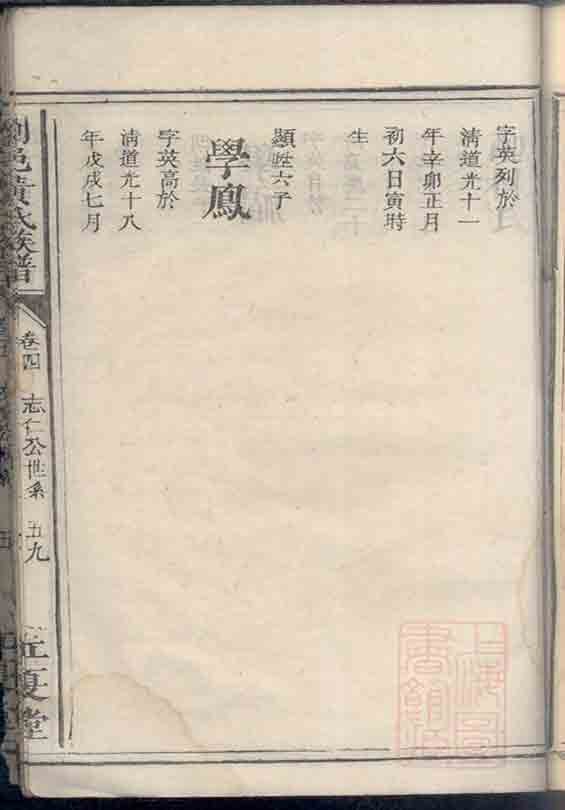 字英列於
清道光十一
年辛卯正月
初六日寅時
生
顯甡六子
學鳳
字英高於
清道光十八
年戊戌七月
劉邑黃氏族譜
卷四
志仁公世系
五九
江夏堂
上海圖
書館藏